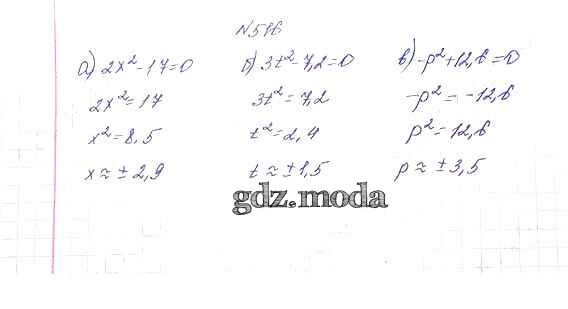 №516
а) 2x²-17=0
2x²=17
x²=8,5
x≈±2,9
б) 3t²-7,2=0
3t²=7,2
t²=2,4
t≈±1,5
в) -p²+12,6=0
-p²=-12,6
p²=12,6
p≈±3,5
gdz.moda